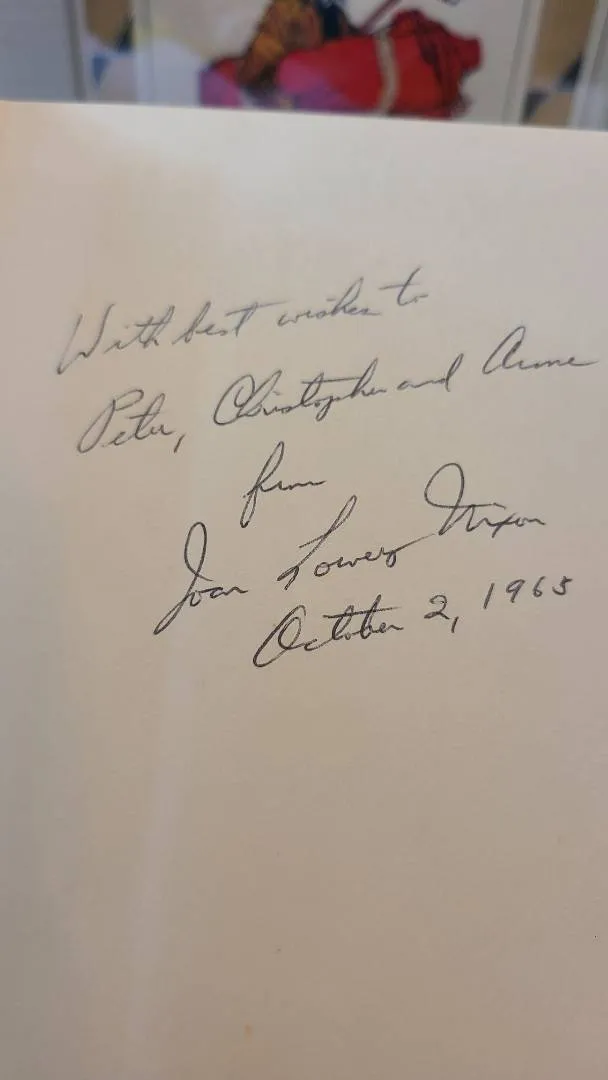 With best wishes to
Peter, Christopher and Anne
from
Joan Lowery Nixon
October 2, 1965